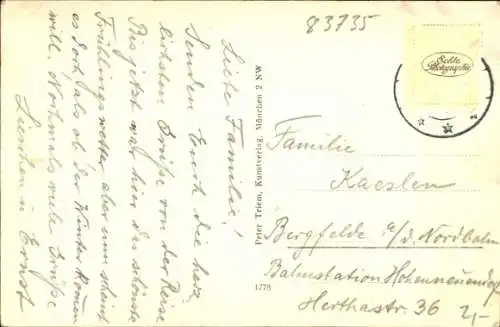 83735
Echte
Photographie
Liebe Familie!
Senden Euch die herz-
lichsten Grüße von der Reise
Bis jetzt war hier das schönste
Frühlingswetter aber nun scheint
es doch als ob der Winter kommen
will. Nochmals viele Grüße
Lieschen u. Ernst
Peter Triem, Kunstverlag, München 2 NW
1778
Familie
Kaeslen
Bergfelde b/d. Nordbahn
Bahnstation Hohenneuendorf
Herthastr. 36
2,-